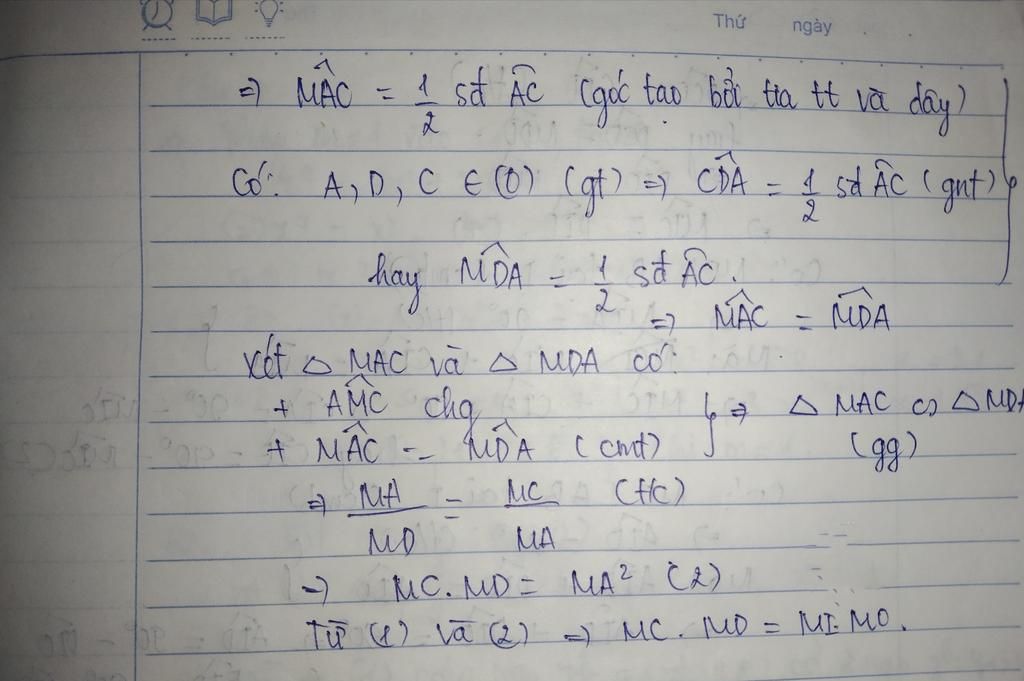 Thứ ngày
⇒ M̂AC = 1/2 sđ AC (góc tạo bởi tia tt và dây)
Có: A, D, C ∈ (O) (gt) ⇒ CDA = 1/2 sđ AC (gnt)
hay MDA = 1/2 sđ AC.
⇒ MAC = MDA
Xét △ MAC và △ MDA có:
+ AMC chg
+ MAC = MDA (cmt) } ⇒ △ MAC ∽ △ MDA
(gg)
⇒ MA/MD = MC/MA (t/c)
⇒ MC.MD = MA² (2)
Từ (1) và (2) ⇒ MC.MD = MI.MO.